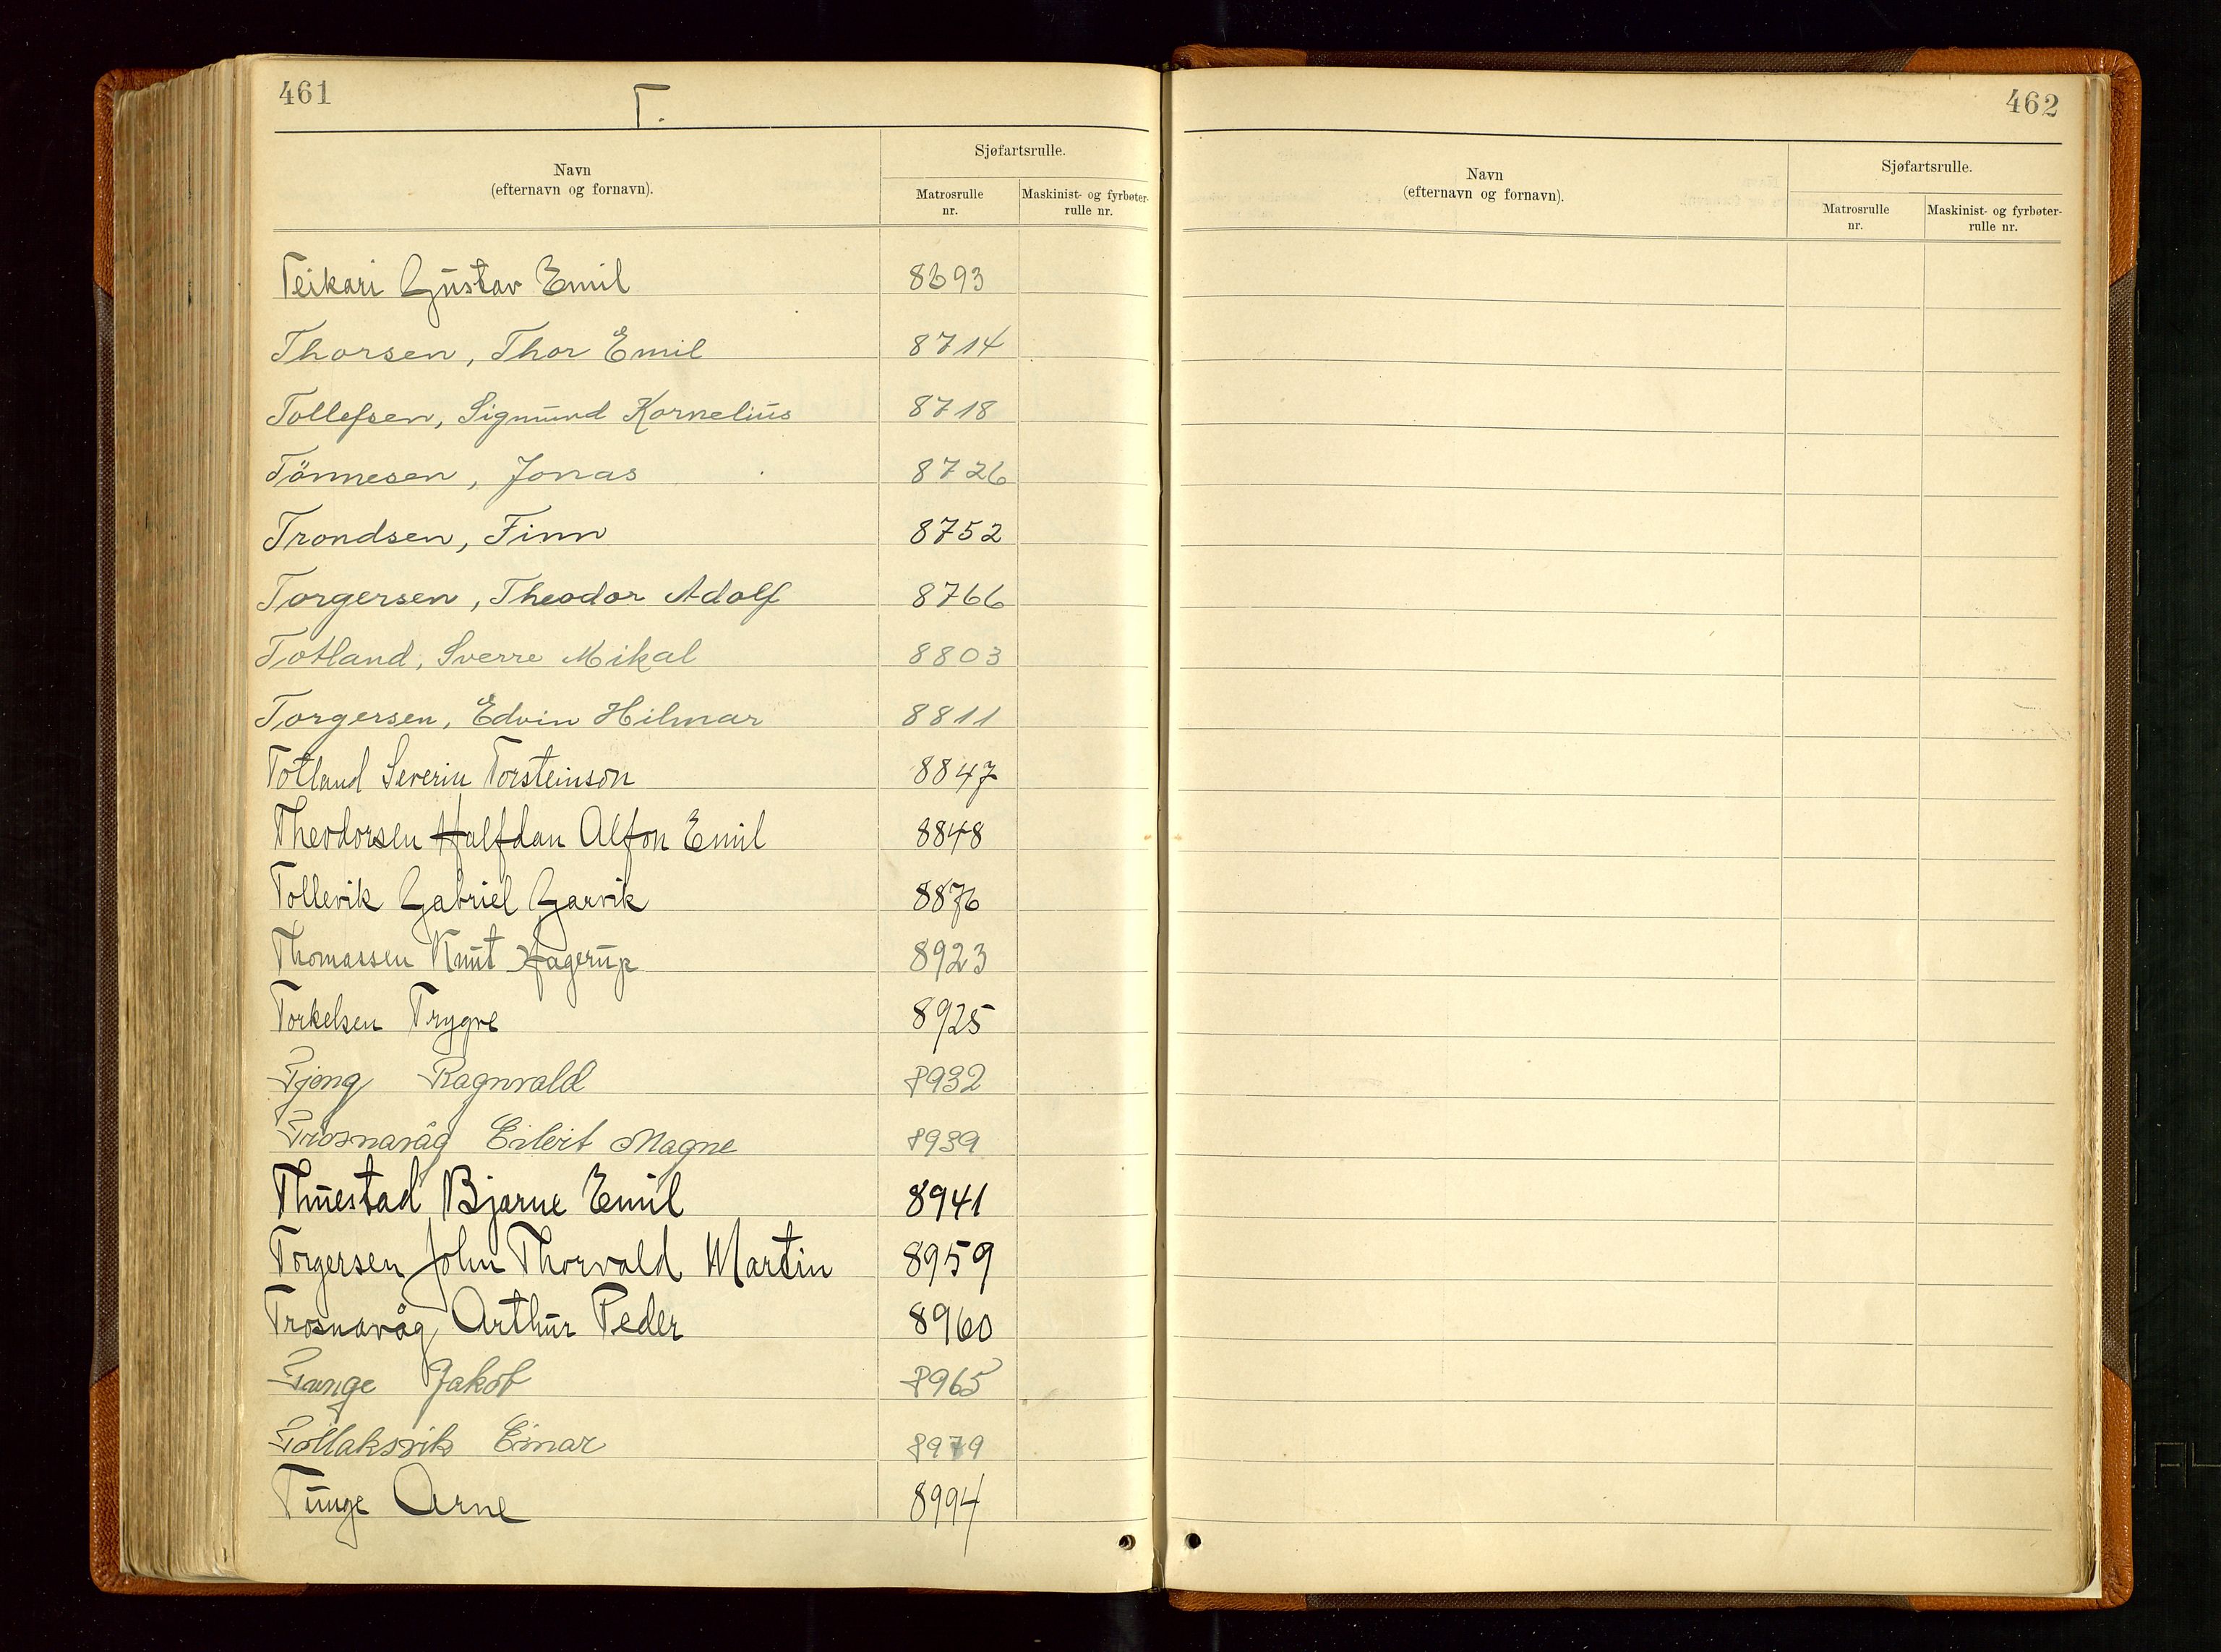 461
T.
Navn
(efternavn og fornavn).
Sjøfartsrulle.
Matrosrulle
nr.
Maskinist- og fyrbøter-
rulle nr.
Teikari Gustav Emil 8693
Thorsen, Thor Emil 8714
Tollefsen, Sigmund Kornelius 8718
Tönnesen, Jonas 8726
Trondsen, Finn 8752
Torgersen, Theodor Adolf 8766
Totland, Sverre Mikal 8803
Torgersen, Edvin Hilmar 8811
Totland Severin Torsteinson 8847
Theodorsen Halfdan Alfon Emil 8848
Tollevik Gabriel Garvik 8876
Thomassen Knut Hagerup 8923
Torkelsen Trygve 8925
Tjong Ragnvald 8932
Trosnavåg Eilert Magne 8939
Thuestad Bjarne Emil 8941
Torgersen John Thorvald Martin 8959
Trosnavåg Arthur Peder 8960
Tange Jakob 8965
Tollaksvik Einar 8979
Tunge Arne 8994
462
Navn
(efternavn og fornavn).
Sjøfartsrulle.
Matrosrulle
nr.
Maskinist- og fyrbøter-
rulle nr.